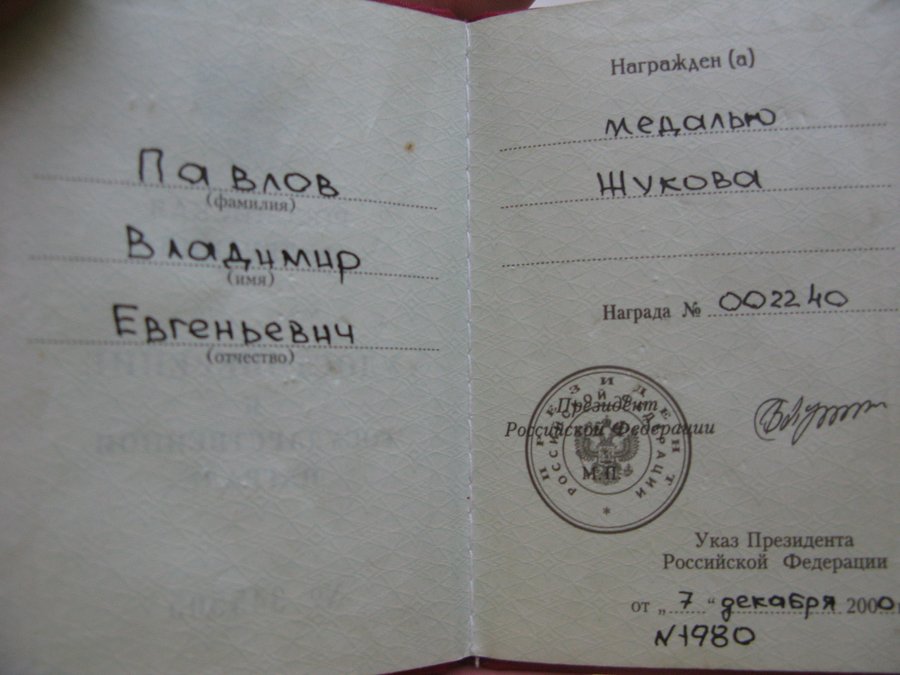 Павлов
(фамилия)
Владимир
(имя)
Евгеньевич
(отчество)
Награжден (а)
медалью
Жукова
Награда № 002240
Президент
Российской Федерации
М.П.
ПРЕЗИДЕНТ
РОССИЙСКОЙ ФЕДЕРАЦИИ
Указ Президента
Российской Федерации
от „ 7 “ декабря 2000
N1980